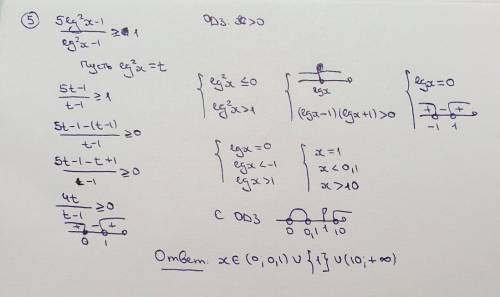 ⑤ (5lg²x-1)/(lg²x-1) ≥ 1     ОДЗ. x>0
Пусть lg²x=t
(5t-1)/(t-1) ≥ 1
(5t-1-(t-1))/(t-1) ≥ 0
(5t-1-t+1)/(t-1) ≥ 0
4t/(t-1) ≥ 0
+ - +
0 1
{ lg²x≤0
lg²x>1
{ lgx
(lgx-1)(lgx+1)>0
{ lgx=0
+ - +
-1 1
{ lgx=0
lgx<-1
lgx>1
{ x=1
x<0,1
x>10
С ОДЗ
0 0,1 1 10
Ответ. x∈(0,0,1)∪{1}∪(10;+∞)